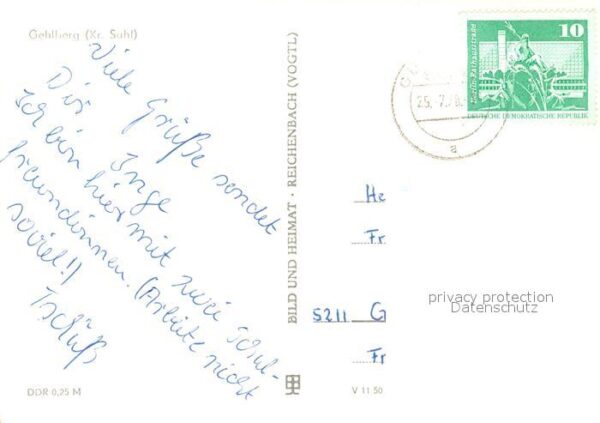 Gehlberg (Kr. Suhl)
Viele Grüße sendet
Dir Inge
Ich bin hier mit zwei Schul-
freundinnen. (Arbeite nicht
soviel!)
Tschüß
DDR 0,25 M
BILD UND HEIMAT · REICHENBACH (VOGTL)
V 11 50
10
Berlin, Rathausstraße
DEUTSCHE DEMOKRATISCHE REPUBLIK
25.-7.
a
He
Fr
5211 G
Fr
privacy protection
Datenschutz